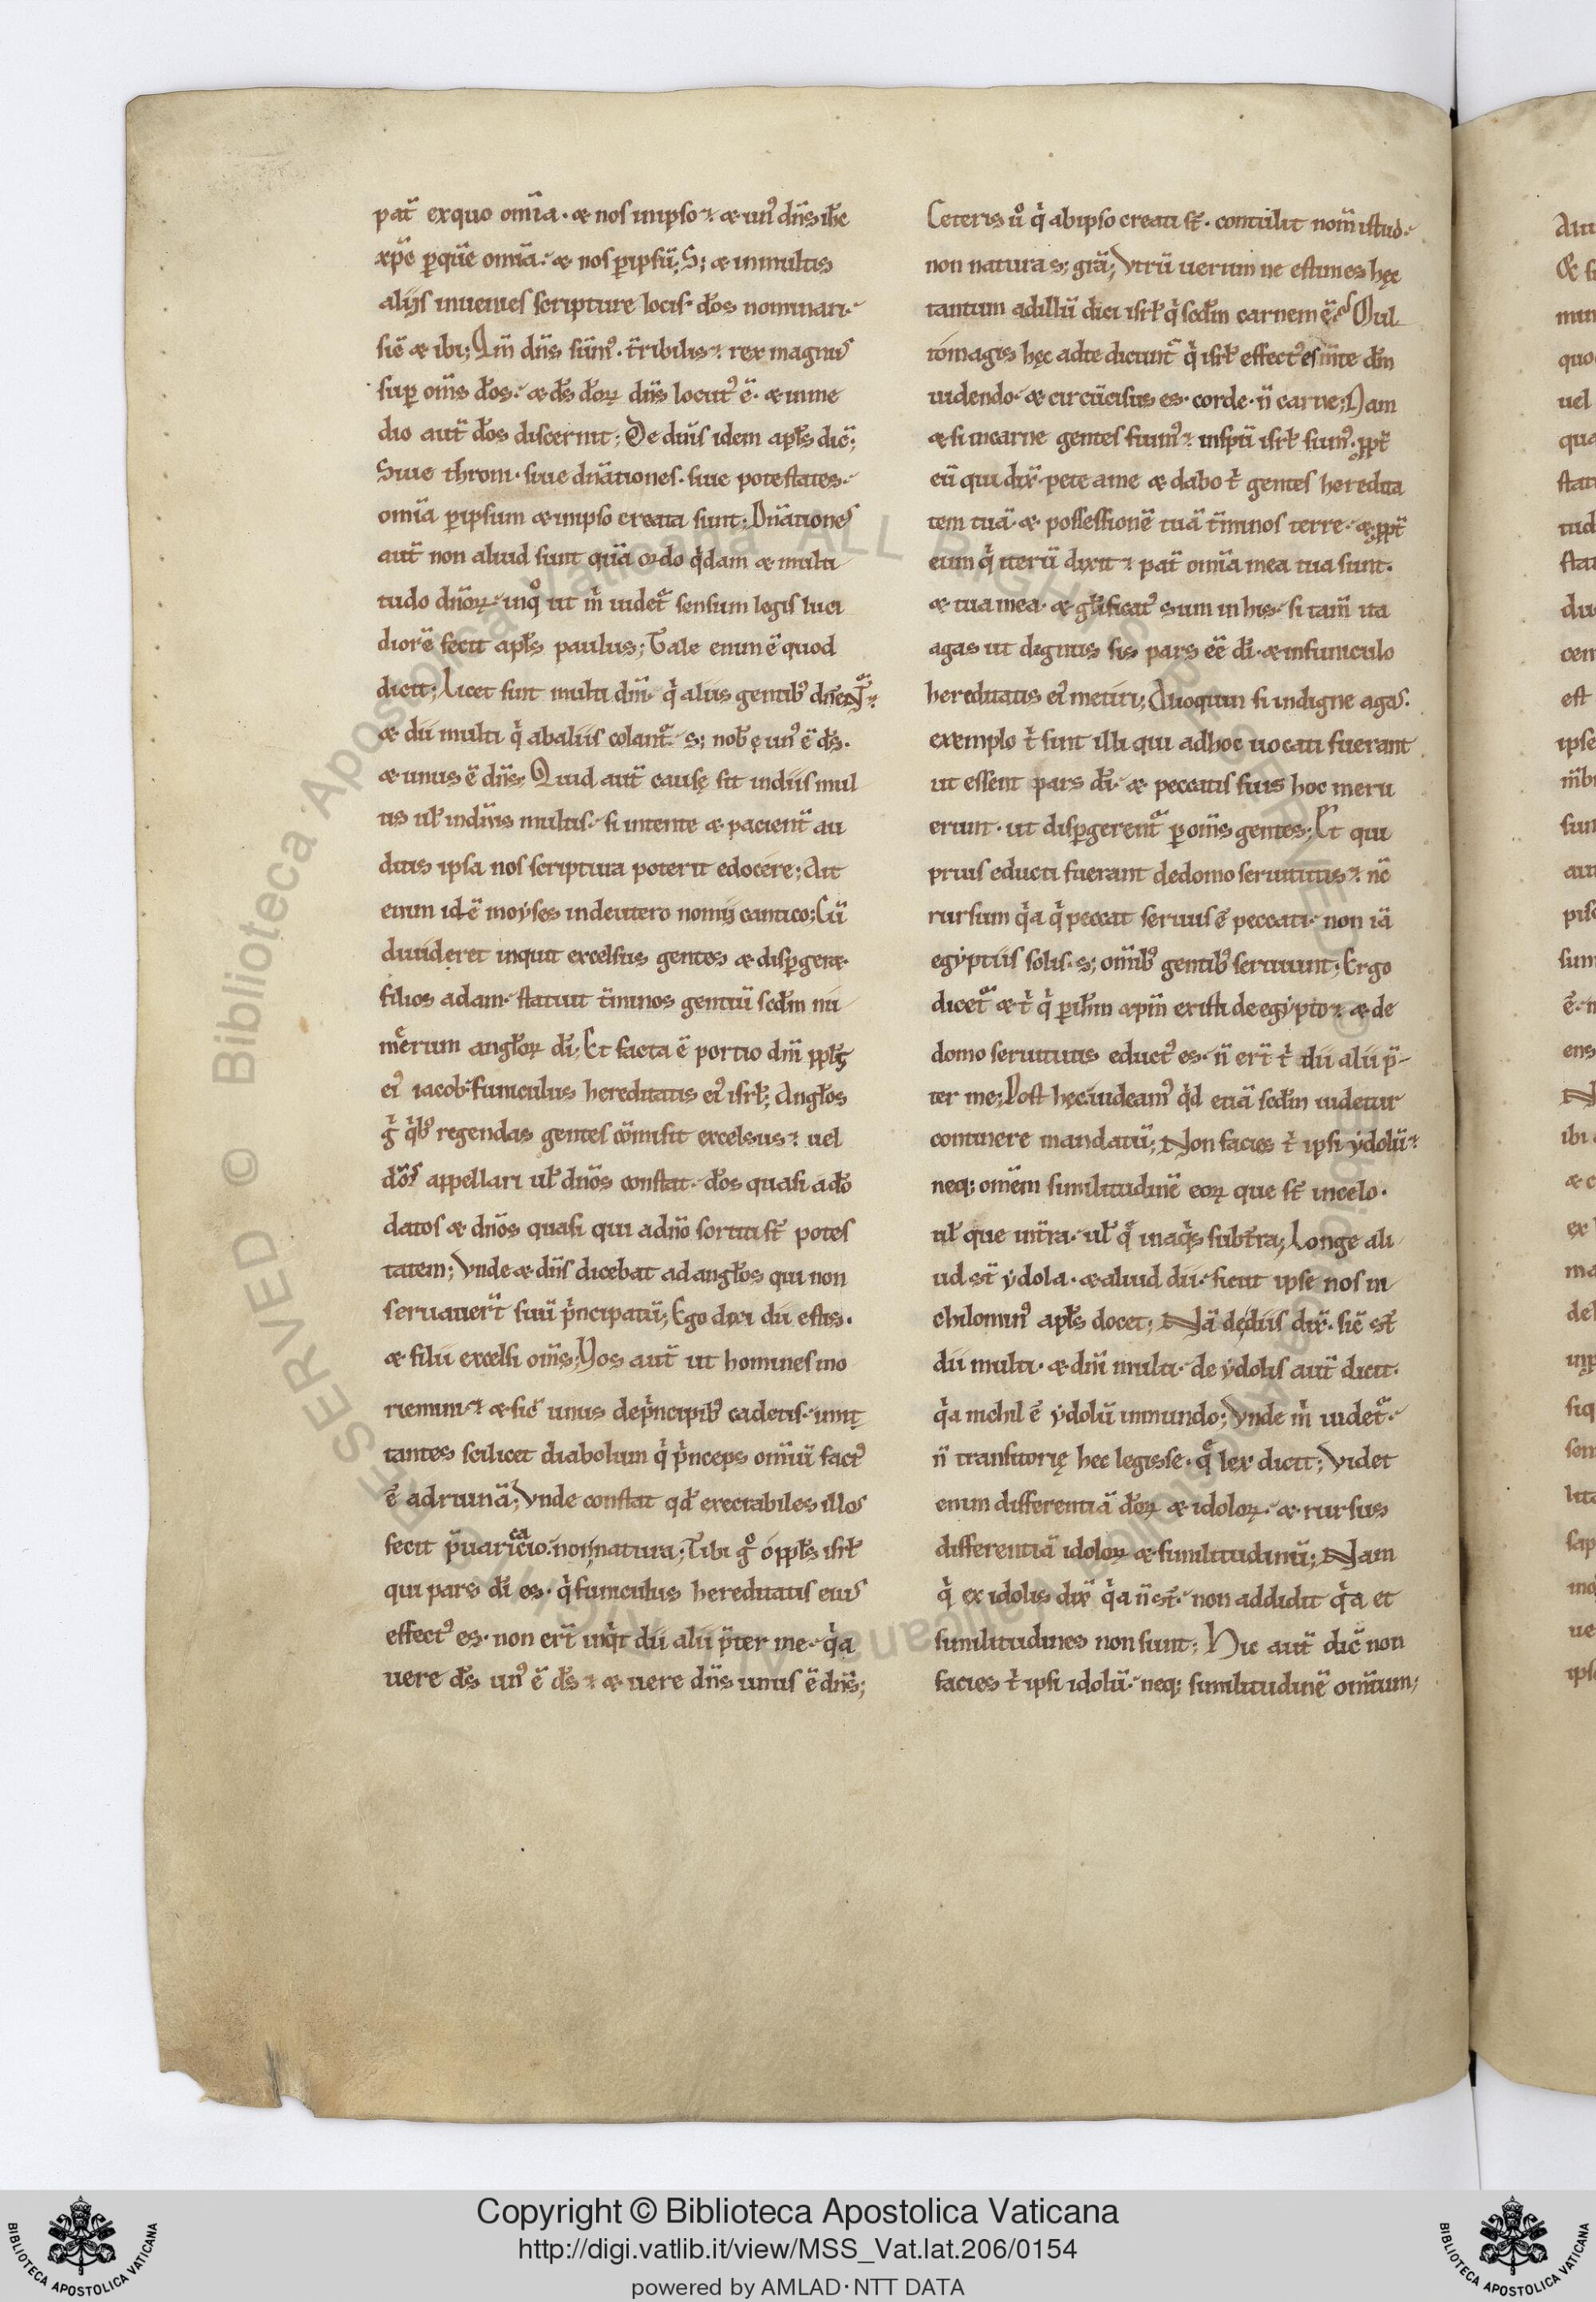 pat̄ exquo om̄ia· & nos inipso· & un᾽ dn̄s ih̄c
xp̄c ꝑquē om̄ia· & nos ꝑipsū; S; & inmultis
alijs inuenies scripture locis· d̄os nominari·
sic̄ & ibi; Qm̄ dn̄s sūm᾽· t̄ribilis· rex magnus
suꝑ om̄s d̄os· & d̄s d̄oꝝ dn̄s locut᾽ ē· & inme
dio aut̄ d̄os discernit; De dn̄is idem apl̄s dic̄;
Siue throni· siue dn̄ationes· siue potestates·
om̄ia ꝑipsum & inipso creata sunt; Dn̄ationes
aut̄ non aliud sunt quā ordo q̇dam & multi
tudo dn̄oꝝ· inq̊ ut m̄ uidet᷑ sensum legis luci
diorē fecit apl̄s paulus; Tale enim ē quod
dicit; Licet sint multi dn̄i· q̇ aliis gentib᾽
& dii multi q̇ abaliis colant᷑· s; nob̄ un᾽ ē d̄s·
& unus ē dn̄s; Quid aut̄ causę sit indiis mul
tis ul̄ indn̄is multis· si intente & pacient̄ au
dias ipsa nos scriptura poterit edocere; Ait
enim idē moẏses indeutero nomij cantico; Cū
diuideret inquit excelsus gentes & disꝑgeret
filios adam· statuit t̄minos gentiū scd̄m nu
merum angl̄oꝝ d̄i; Et facta ē portio dn̄i ppl̄s
ei᾽ iacob· funiculus hereditatis ei᾽ isrl̄; Angl̄os
g̊ q̇b᾽ regendas gentes cōmisit excelsus· uel
d̄os appellari ul̄ dn̄os constat· d̄os quasi ad̄o
datos & dn̄os quasi qui adn̄o sortiti st̄ potes
tatem; Vnde & dn̄s dicebat ad angl̄os qui non
seruauer̄t suū ṗncipatū; Ego dixi dii estis·
& filii excelsi om̄s; Vos aut̄ ut homines mo
riemini· & sic̄ unus deṗncipib᾽ cadetis· imi
tantes scilicet diabolum q̇ ṗnceps om̄iū fact᾽
ē ad ruinā; Vnde constat qd̄ execrabiles illos
fecit p̄uaricacio· non natura; Tibi g̊ o ppl̄s isrl̄
qui pars d̄i es· q̇ funiculus hereditatis eius
effect᾽ es· non er̄t inq̇t dii alii p̄ter me· q̇a
uere d̄s un᾽ ē d̄s· & uere dn̄s unus ē dn̄s;
Ceteris ů q̇ abipso creati st̄· contulit nom̄ istud·
non natura s; grā; Vtrū uerum ne estimes hęc
tantum adillū dici isrl̄ q̇ scd̄m carnem ē? Mul
tomagis hęc adte dicunt᷑ q̇ isrl̄ effect᾽ es m̄te d̄m
uidendo· & circūcisus es· corde· n̄ carne; Nam
& si incarne gentes sum᾽· insp̄u isrl̄ sum᾽· ꝓpt̄
eū qui dix̄· pete ame & dabo ṫ gentes heredita
tem tuā· & possessionē tuā t̄minos terre· & ꝓpt̄
eum q̇ iterū dixit· pat̄ om̄ia mea tua sunt·
& tua mea· & gl̄ificat᾽ sum in his· si tam̄ ita
agas ut dignus sis pars ēē d̄i· & infuniculo
hereditatis ei᾽ metiri; Alioquin si indigne agas·
exemplo ṫ sint illi qui adhoc uocati fuerant
ut essent pars d̄i· & peccatis suis hoc meru
erunt· ut disꝑgerent᷑ ꝑ om̄s gentes; Et qui
prius educti fuerant dedomo seruitutis· nc̄
rursum q̇a q̇ peccat seruus ē peccati· non iā
egẏptiis solis· s; om̄ib᾽ gentib᾽ seruiunt; Ergo
dicet᷑ & ṫ q̇ ꝑ ih̄m xp̄m existi de egẏpto· & de
domo seruitutis educt᾽ es· n̄ er̄t ṫ dii alii p̄-
ter me; Post hęc uideam᾽ q̇d etiā scd̄m uidetur
continere mandatū; Non facies ṫ ipsi ẏdolū·
neq; omēm similitudinē eoꝝ que st̄ incelo·
ul̄ que int̄ra· ul̄ q̄ inaq̇s subt̄ra; Longe ali
ud st̄ ẏdola· & aliud dii· sicut ipse nos ni
chilomin᾽ apl̄s docet; Nā dediis dix̄· sic̄ st̄
dii multi· & dn̄i multi· de ẏdolis aut̄ dicit·
q̇a nichil ē ẏdolū inmundo; Vnde m̄ uidet᷑·
n̄ transitorię hec legisse· q̄ lex dicit; Videt
enim differentiā d̄oꝝ & idoloꝝ· & rursus
differentiā idoloꝝ & similitudinū; Nam
q̇ ex idolis dix̄ q̇a n̄ st̄· non addidit q̇a et
similitudines non sunt; Hic aut̄ dic̄ non
facies ṫ ipsi idolū· neq; similitudinē om̄ium;
Copyright © Biblioteca Apostolica Vaticana
http://digi.vatlib.it/view/MSS_Vat.lat.206/0154
powered by AMLAD·NTT DATA